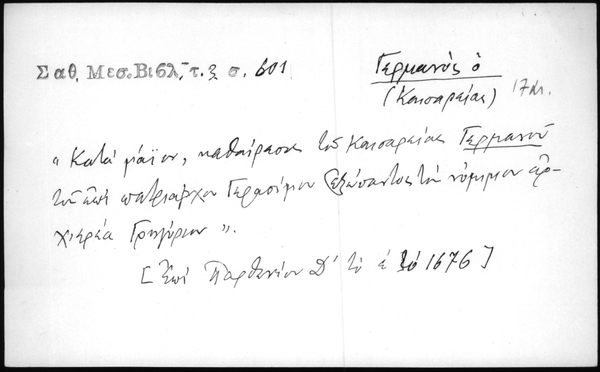 Σαθ. Μεσ. Βιβλ. τ. ξ σ. 601
Γερμανός ὁ
(Καισαρείας) 17 αι.
"Κατά μάϊον, καθαίρεσις τοῦ Καισαρείας Γερμανοῦ
τοῦ ἐπί πατριάρχου Γερασίμου ἐξώσαντος τόν νόμιμον ἀρ-
χιερέα Γρηγόριον".
[Ἐπί Παρθενίου Δ' τό 1676]